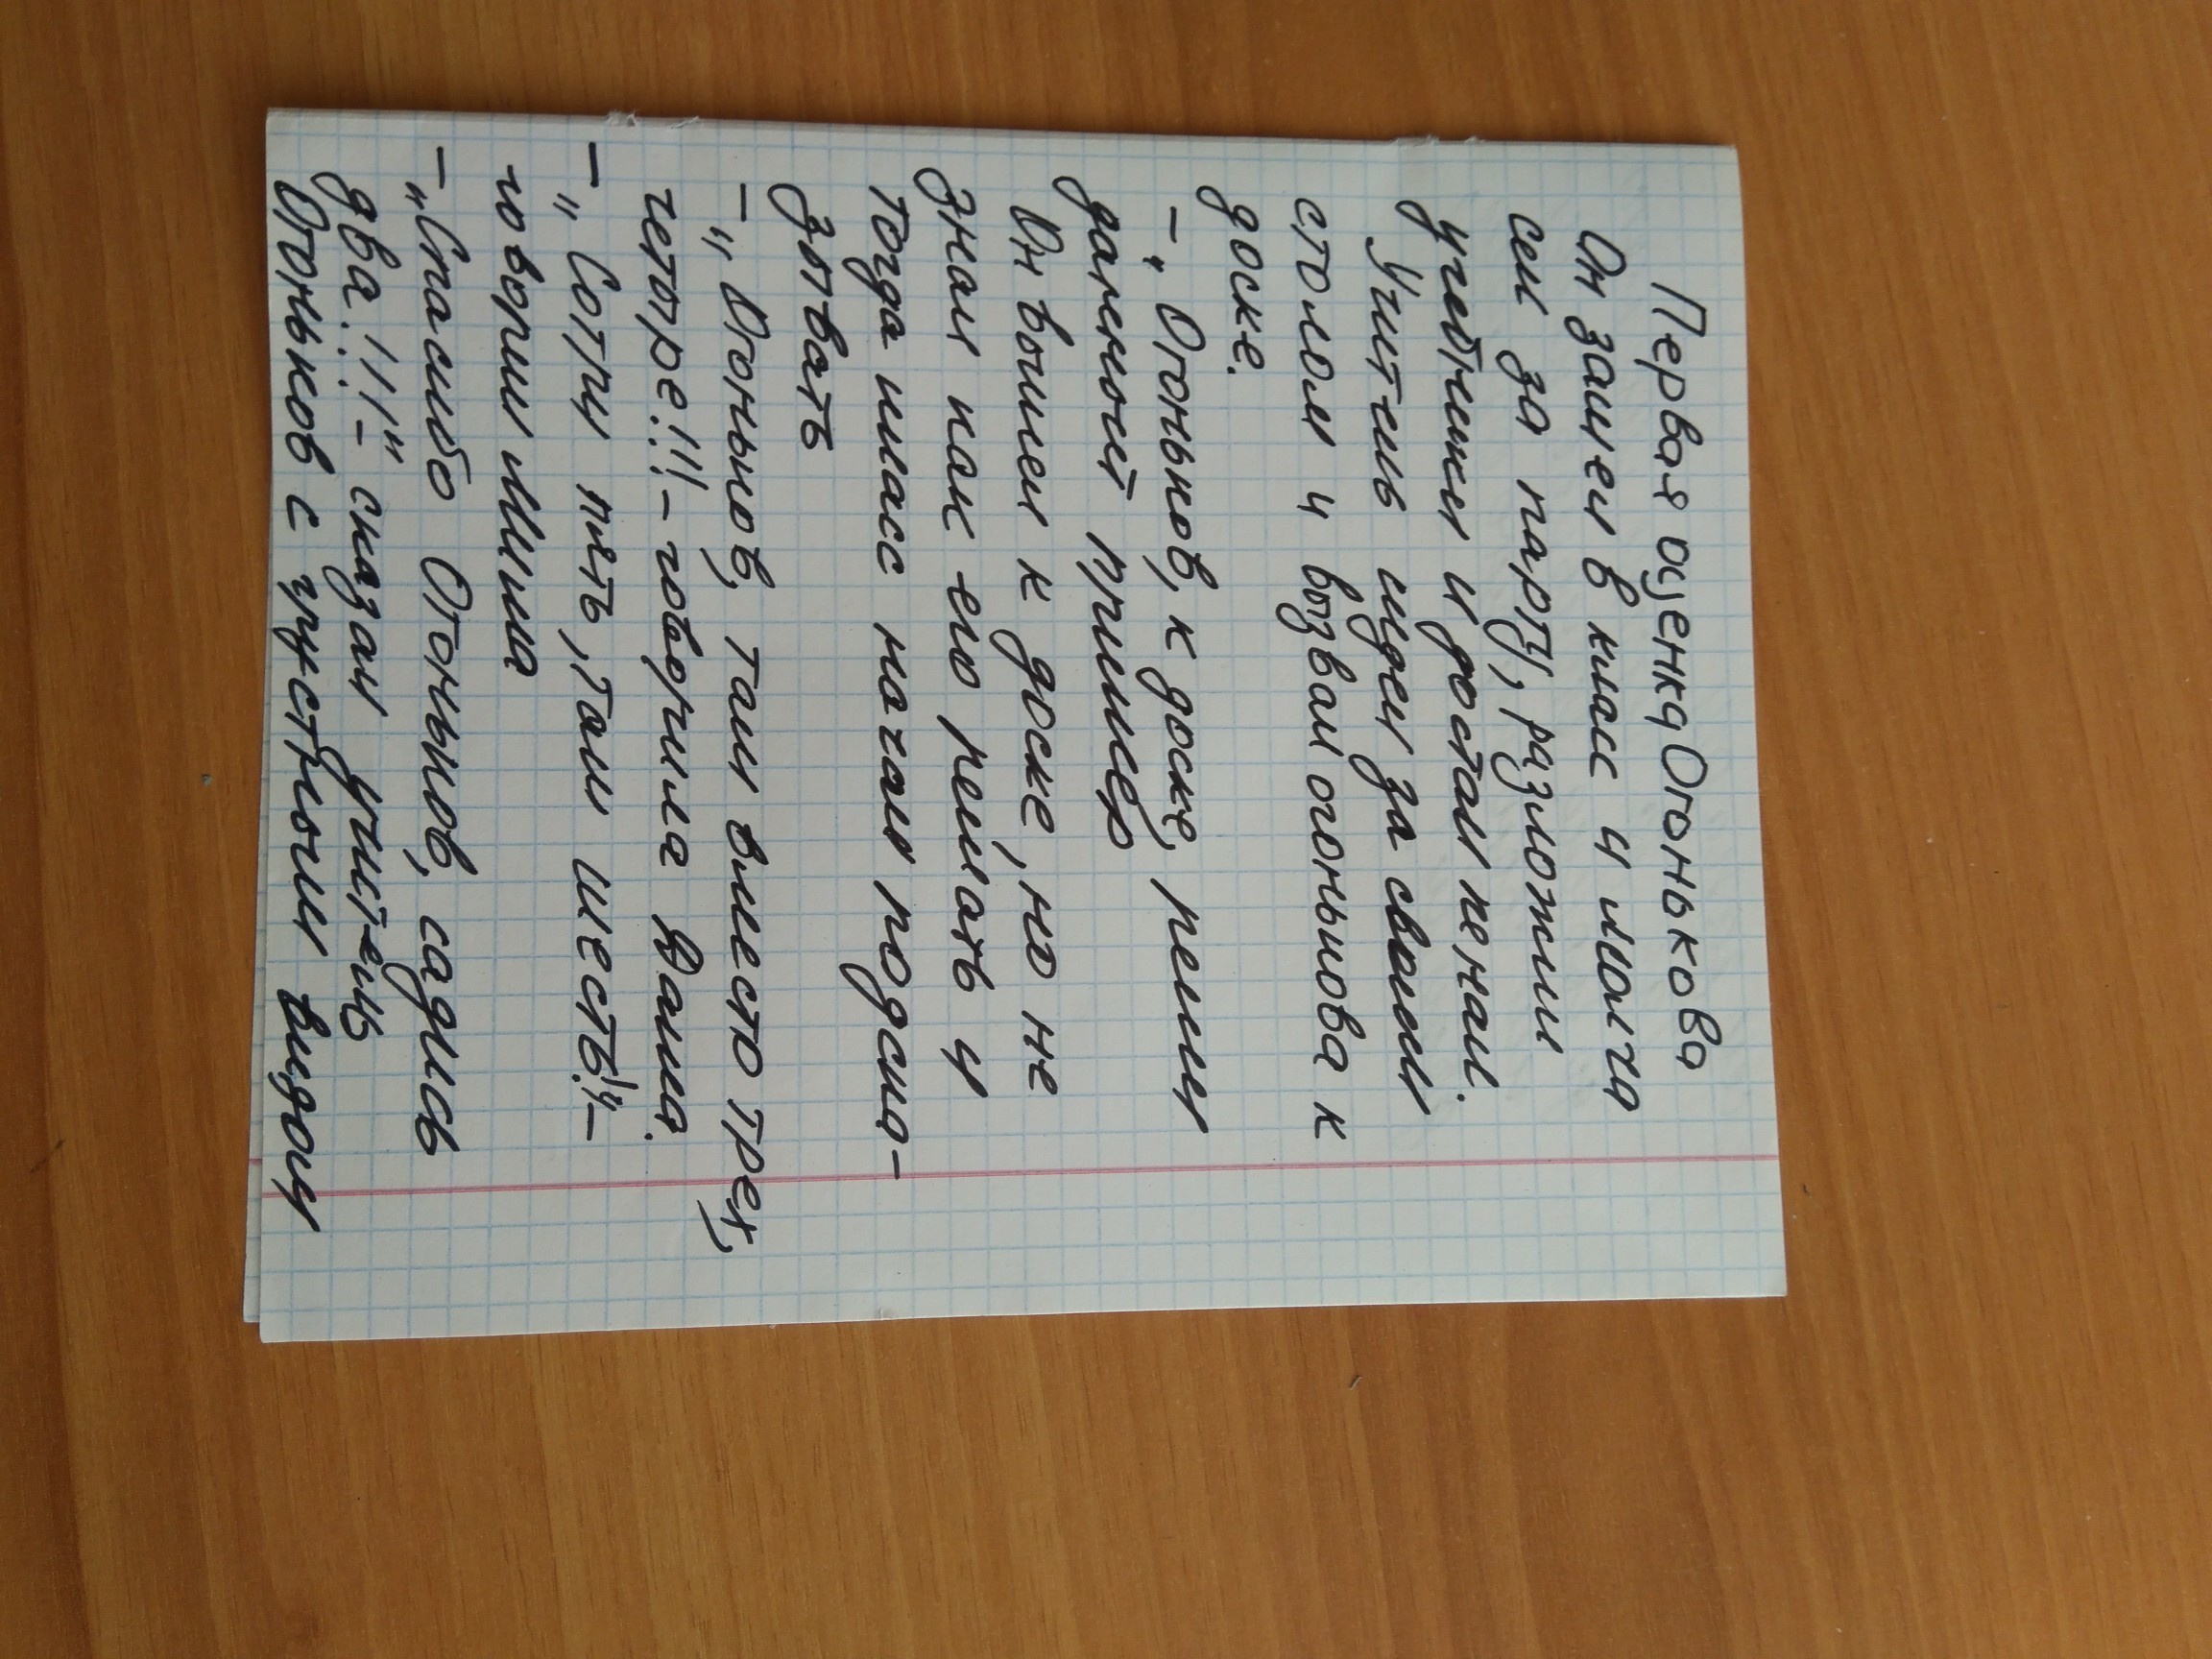 Первая оценка Огонькова
Он зашел в класс и молча
сел за парту, разложил
учебники и достал пенал.
Учитель сидел за своим
столом и вызвал огонькова к
доске.
-„Огоньков, к доске, реши
данный пример
Он вошел к доске, но не
знал как его решать и
тогда класс начал подска-
зывать
-„Огоньков, там вместо трех,
четыре!!!- говорила Даша.
-„Сотри пять, там шесть!"-
говорил Миша
-„Спасибо Огоньков, садись
два!!!"- сказал учитель
Огоньков с грустным видом